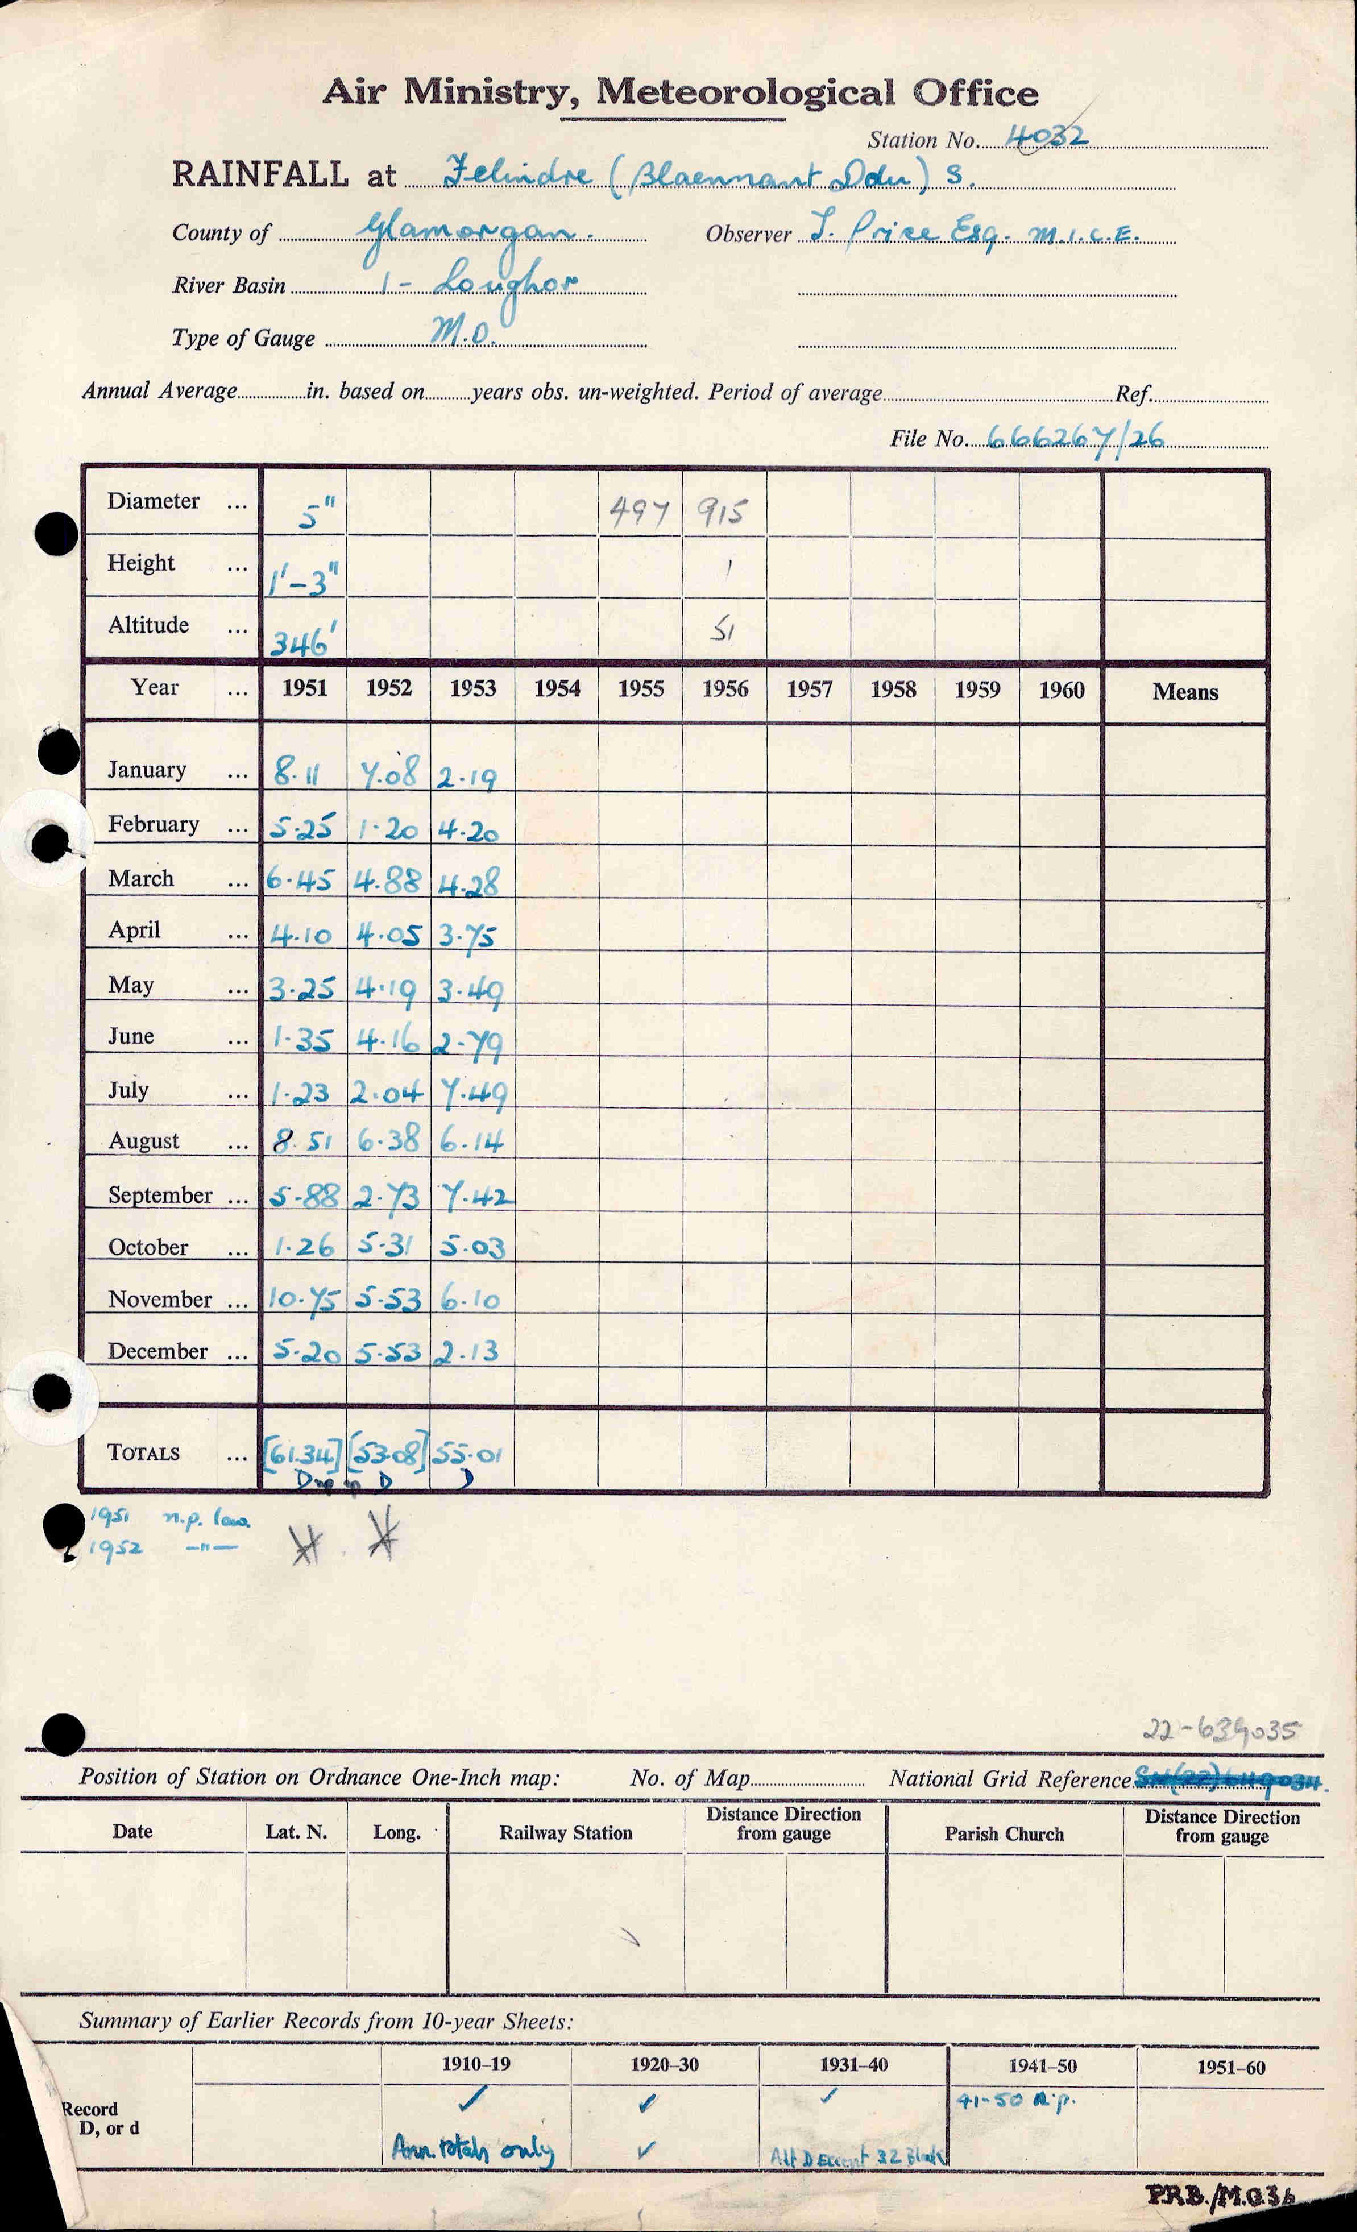 Air Ministry, Meteorological Office
Station No. 4032
RAINFALL at Felindre (Blaennant Ddu) S.
County of Glamorgan. Observer T. Price Esq. M.I.C.E.
River Basin 1 - Loughor
Type of Gauge M.O.
Annual Average in. based on years obs. un-weighted. Period of average Ref.
File No. 666267/26
Diameter ... 5" 497 915
Height ... 1'-3" 1
Altitude ... 346' 51
Year ... 1951 1952 1953 1954 1955 1956 1957 1958 1959 1960 Means
January ... 8.11 7.08 2.19
February ... 5.25 1.20 4.20
March ... 6.45 4.88 4.28
April ... 4.10 4.05 3.75
May ... 3.25 4.19 3.49
June ... 1.35 4.16 2.79
July ... 1.23 2.04 7.49
August ... 8.51 6.38 6.14
September ... 5.88 2.73 7.42
October ... 1.26 5.31 5.03
November ... 10.75 5.53 6.10
December ... 5.20 5.53 2.13
TOTALS ... [61.34] [53.08] 55.01
D D
1951 n.p. low.
1952 —"—
22-639035
Position of Station on Ordnance One-Inch map: No. of Map National Grid Reference SN(22)649034.
Date Lat. N. Long. Railway Station Distance Direction from gauge Parish Church Distance Direction from gauge
Summary of Earlier Records from 10-year Sheets:
1910–19 1920–30 1931–40 1941–50 1951–60
Record ✓ ✓ ✓ 41-50 n.p.
D, or d Ann. totals only ✓ All D Except 32 Blank
P.R.B./M.O.36